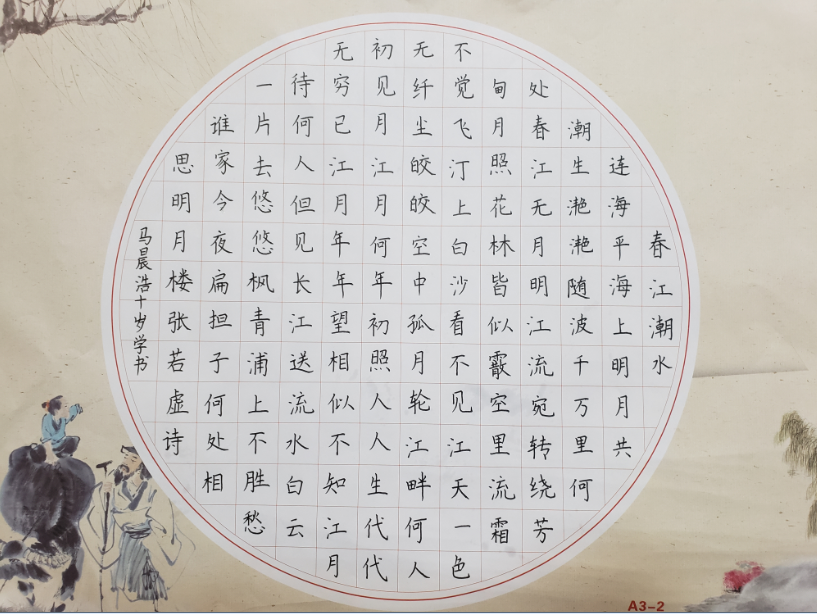 春江潮水
连海平海上明月共
潮生滟滟随波千万里何
处春江无月明江流宛转绕芳
甸月照花林皆似霰空里流霜
不觉飞汀上白沙看不见江天一色
无纤尘皎皎空中孤月轮江畔何人
初见月江月何年初照人人生代代
无穷已江月年年望相似不知江月
待何人但见长江送流水白云
一片去悠悠枫青浦上不胜愁
谁家今夜扁担子何处相
思明月楼张若虚诗
马晨浩十岁学书
A3-2